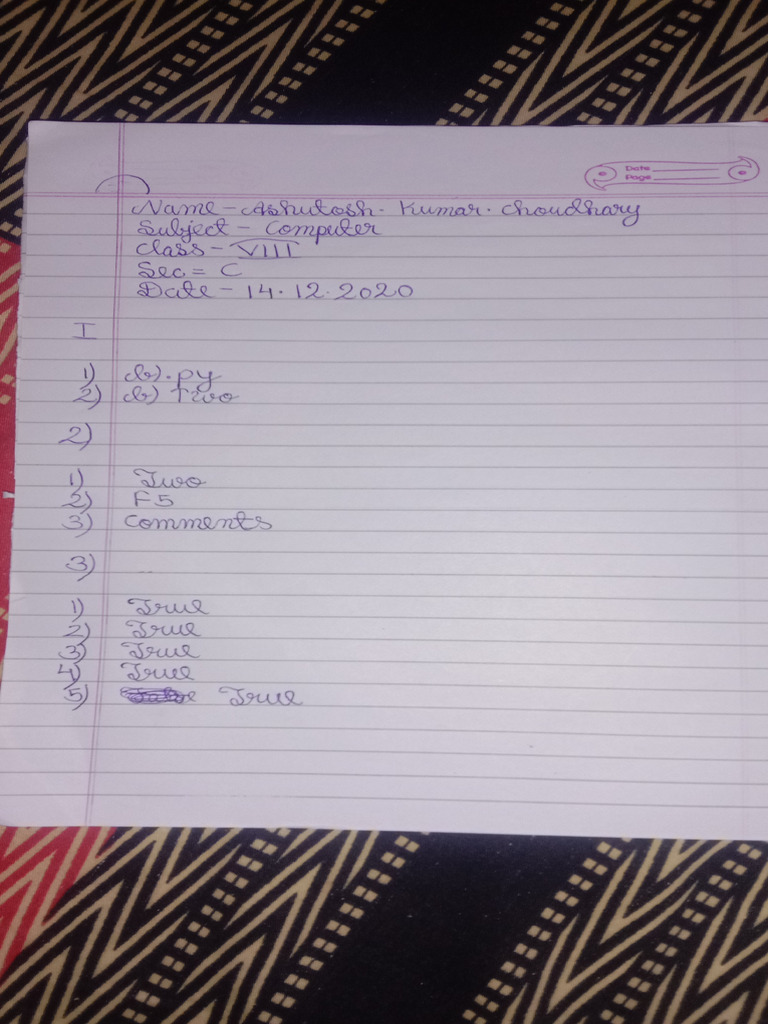 Date
Page
Name - Ashutosh. Kumar. Choudhary
Subject - Computer
Class - VIII
Sec = C
Date - 14.12.2020
I
1) b) .py
2) b) Two
2)
1) Two
2) F5
3) Comments
3)
1) True
2) True
3) True
4) True
5) True